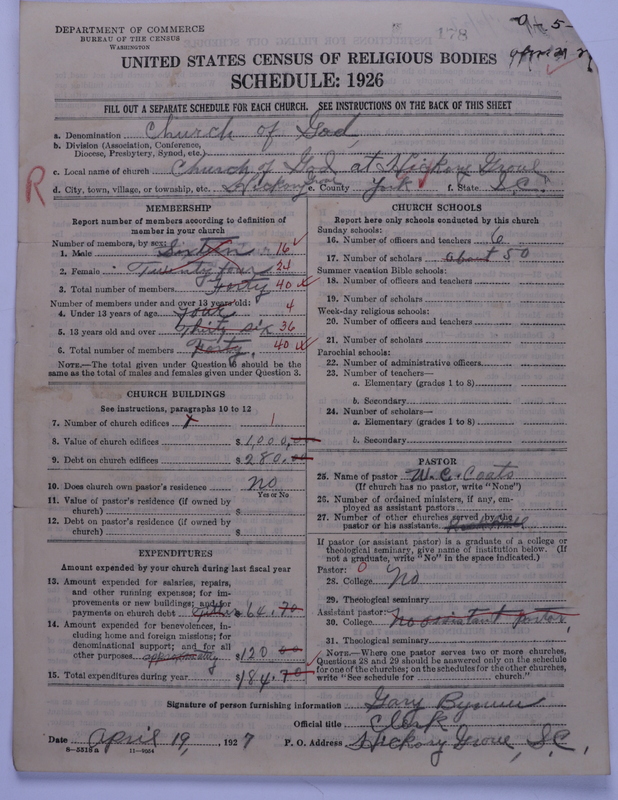 DEPARTMENT OF COMMERCE
BUREAU OF THE CENSUS
WASHINGTON
178
9-5-
UNITED STATES CENSUS OF RELIGIOUS BODIES
SCHEDULE: 1926
FILL OUT A SEPARATE SCHEDULE FOR EACH CHURCH. SEE INSTRUCTIONS ON THE BACK OF THIS SHEET
a. Denomination Church of God
b. Division (Association, Conference,
Diocese, Presbytery, Synod, etc.)
c. Local name of church Church of God at Hickory Grove
R
d. City, town, village, or township, etc. Hickory Gro e. County York f. State S.C.
MEMBERSHIP
Report number of members according to definition of
member in your church
Number of members, by sex:
1. Male Sixteen 16
2. Female Twenty four 24
3. Total number of members Forty 40
Number of members under and over 13 years old:
4. Under 13 years of age four 4
5. 13 years old and over Thirty six 36
6. Total number of members Forty 40
NOTE.—The total given under Question 6 should be the
same as the total of males and females given under Question 3.
CHURCH BUILDINGS
See instructions, paragraphs 10 to 12
7. Number of church edifices 1
8. Value of church edifices $1,000.00
9. Debt on church edifices $280.00
10. Does church own pastor's residence no
Yes or No
11. Value of pastor's residence (if owned by
church) $
12. Debt on pastor's residence (if owned by
church) $
EXPENDITURES
Amount expended by your church during last fiscal year
13. Amount expended for salaries, repairs,
and other running expenses; for im-
provements or new buildings; and for
payments on church debt $64.70
14. Amount expended for benevolences, in-
cluding home and foreign missions; for
denominational support; and for all
other purposes $120 00
15. Total expenditures during year $184.70
CHURCH SCHOOLS
Report here only schools conducted by this church
Sunday schools:
16. Number of officers and teachers 6
17. Number of scholars about 50
Summer vacation Bible schools:
18. Number of officers and teachers
19. Number of scholars
Week-day religious schools:
20. Number of officers and teachers
21. Number of scholars
Parochial schools:
22. Number of administrative officers
23. Number of teachers—
a. Elementary (grades 1 to 8)
b. Secondary
24. Number of scholars—
a. Elementary (grades 1 to 8)
b. Secondary
PASTOR
25. Name of pastor W. C. Coats
(If church has no pastor, write "None")
26. Number of ordained ministers, if any, em-
ployed as assistant pastors
27. Number of other churches served by the
pastor or his assistants
If pastor (or assistant pastor) is a graduate of a college or
theological seminary, give name of institution below. (If
not a graduate, write "No" in the space indicated.)
Pastor: 0
28. College No
29. Theological seminary
Assistant pastor:
30. College No assistant pastor
31. Theological seminary
NOTE.—Where one pastor serves two or more churches,
Questions 28 and 29 should be answered only on the schedule
for one of the churches; on the schedules for the other churches,
write "See schedule for church."
Signature of person furnishing information Gary Bynum
Official title Clerk
Date April 19, 1927 P. O. Address Hickory Grove, S.C.,
8-5318a 11-9054